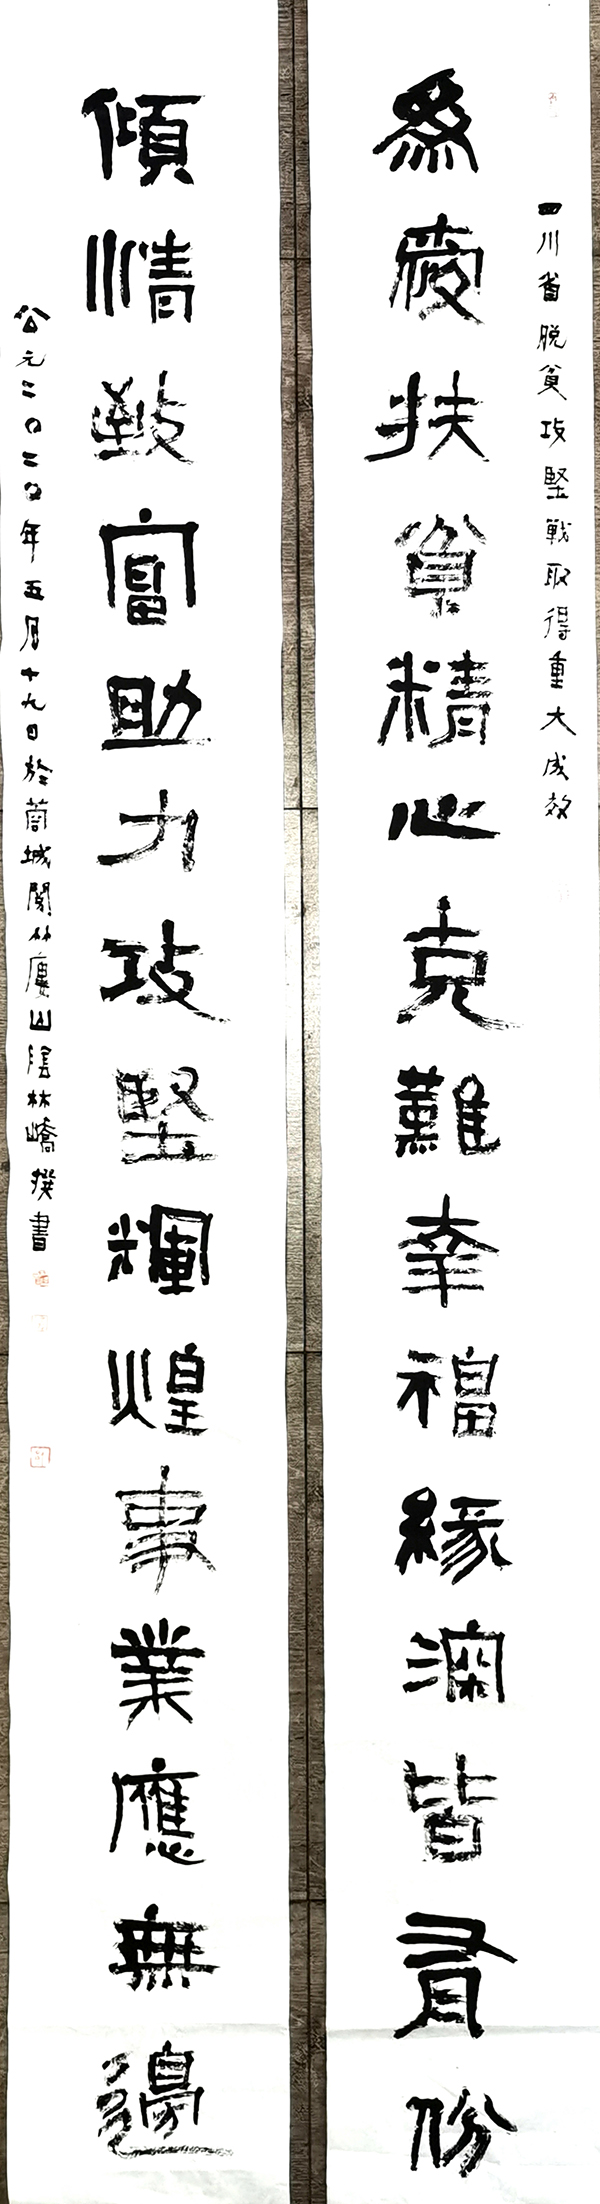 四川省脫貧攻堅戰取得重大成效
為愛扶貧精心克難幸福緣深皆有份
傾情致富助力攻堅輝煌事業應無邊
公元二〇二〇年五月十九日於城竹山陰林嶠撰書